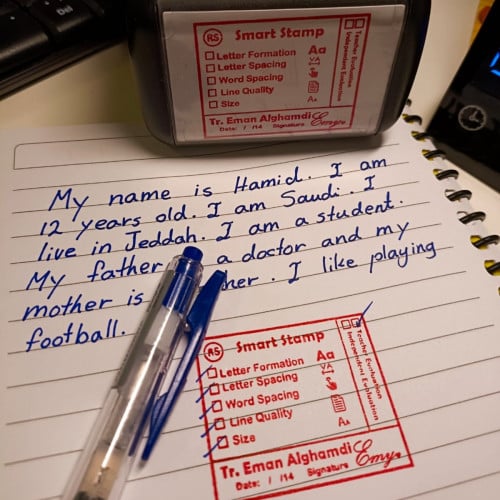 RS Smart Stamp
Letter Formation Aa
Letter Spacing
Word Spacing
Line Quality
Size Aa
Teacher Evaluation
Independent Evaluation
Tr. Eman Alghamdi
Date: / /14 Signature
My name is Hamid. I am
12 years old. I am Saudi. I
live in Jeddah. I am a student.
My father a doctor and my
mother is her. I like playing
football.
RS Smart Stamp
Letter Formation Aa
Letter Spacing
Word Spacing
Line Quality
Size Aa
Teacher Evaluation
Independent Evaluation
Tr. Eman Alghamdi
Date: / /14 Signature